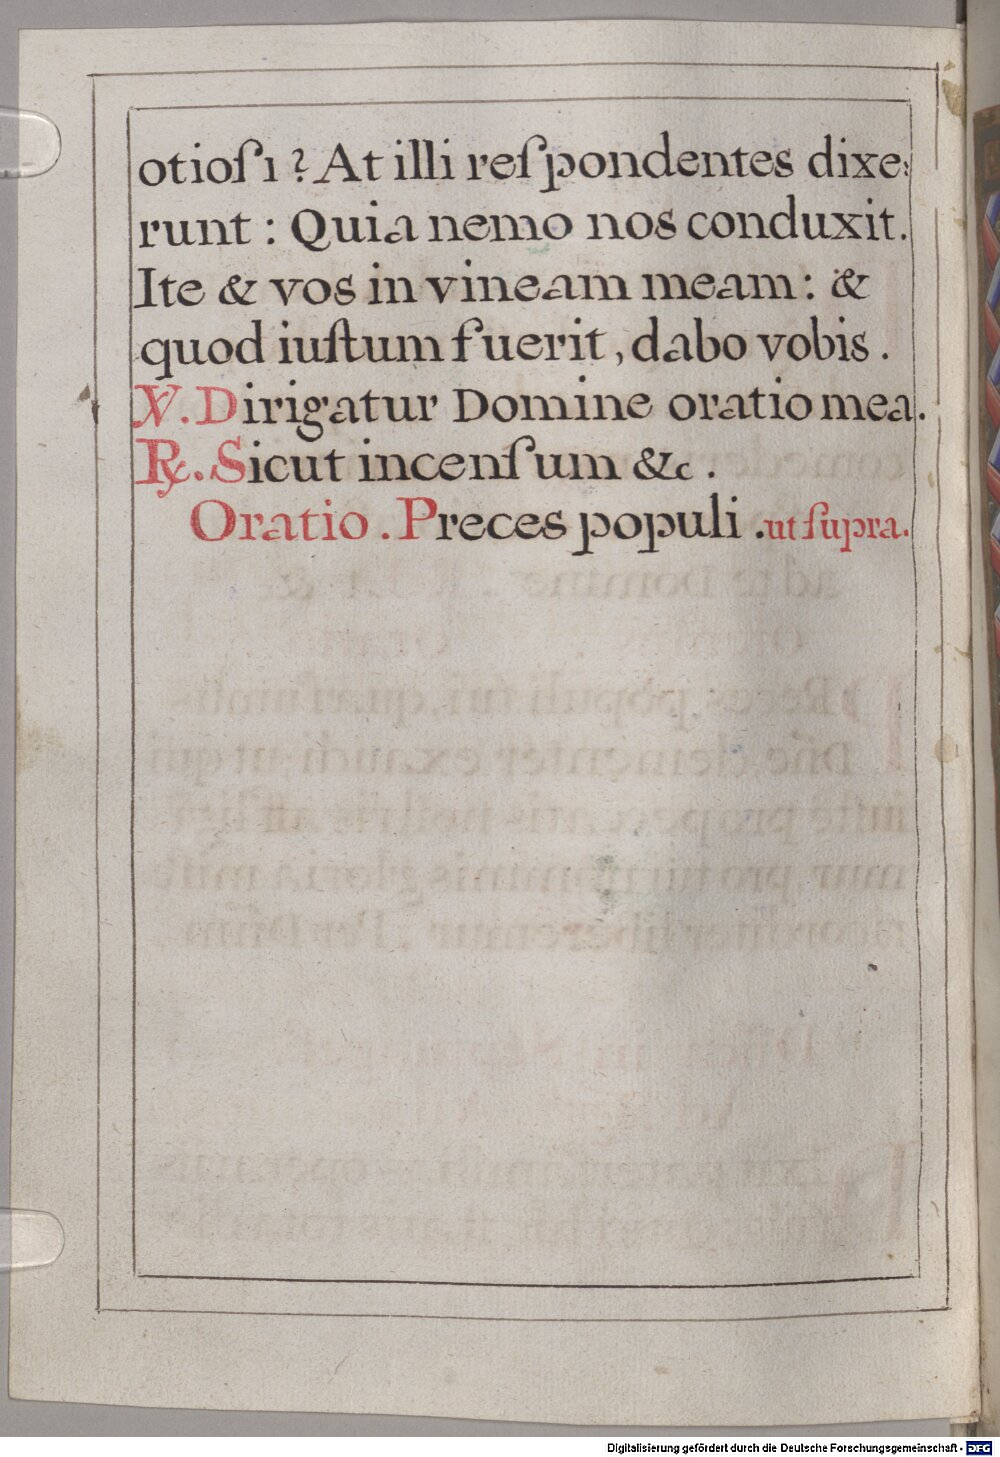 otioſi ? At illi reſpondentes dixe:
runt : Quia nemo nos conduxit.
Ite & vos in vineam meam : &
quod iuſtum fuerit, dabo vobis .
℣. Dirigatur Domine oratio mea.
℟. Sicut incenſum &c .
Oratio . Preces populi . ut ſupra.
Digitalisierung gefördert durch die Deutsche Forschungsgemeinschaft - DFG